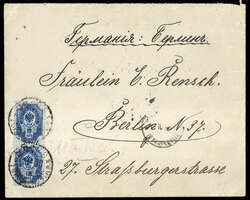 Германія: Берлинъ.
Fräulein E. Rensch.
Berlin N. 37.
27. Straßburgerstrasse